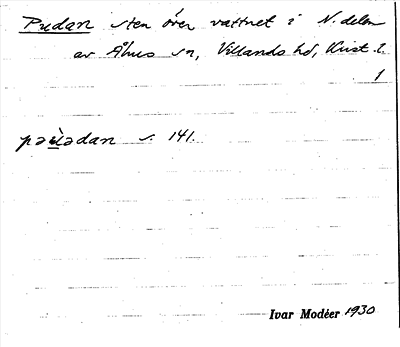 Pudan sten över vattnet i N. delen
av Åhus sn, Villands hd, Krist. l.
1
pəùədan s. 141.
Ivar Modéer 1930